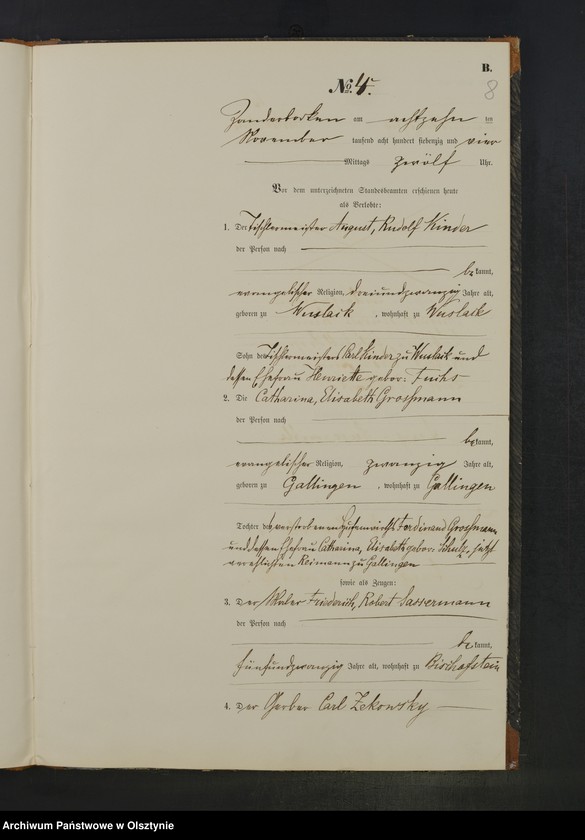 B.
8
No. 4.
Zanderborken am achtzehn ten
November tausend acht hundert siebenzig und vier
Mittags zwölf Uhr.
Vor dem unterzeichneten Standesbeamten erschienen heute
als Verlobte:
1. Der Tischlermeister August, Rudolf Kinder
der Person nach
bekannt,
evangelischer Religion, dreiundzwanzig Jahre alt,
geboren zu Wuslack, wohnhaft zu Wuslack
Sohn des Tischlermeisters Carl Kinder zu Wuslack und
dessen Ehefrau Henriette gebor: Fuchs
2. Die Catharina, Elisabeth Grossmann
der Person nach
bekannt,
evangelischer Religion, zwanzig Jahre alt,
geboren zu Gallingen, wohnhaft zu Gallingen
Tochter des verstorbenen Hufenwirths Ferdinand Grossmann
und dessen Ehefrau Catharina, Elisabeth gebor: Schulz, jetzt
verehlichten Reimann zu Gallingen
sowie als Zeugen:
3. Der Maler Friederich, Robert Sassermann
der Person nach
bekannt,
fünfundzwanzig Jahre alt, wohnhaft zu Bischofstein
4. Der Gerber Carl Zekowsky
Archiwum Państwowe w Olsztynie